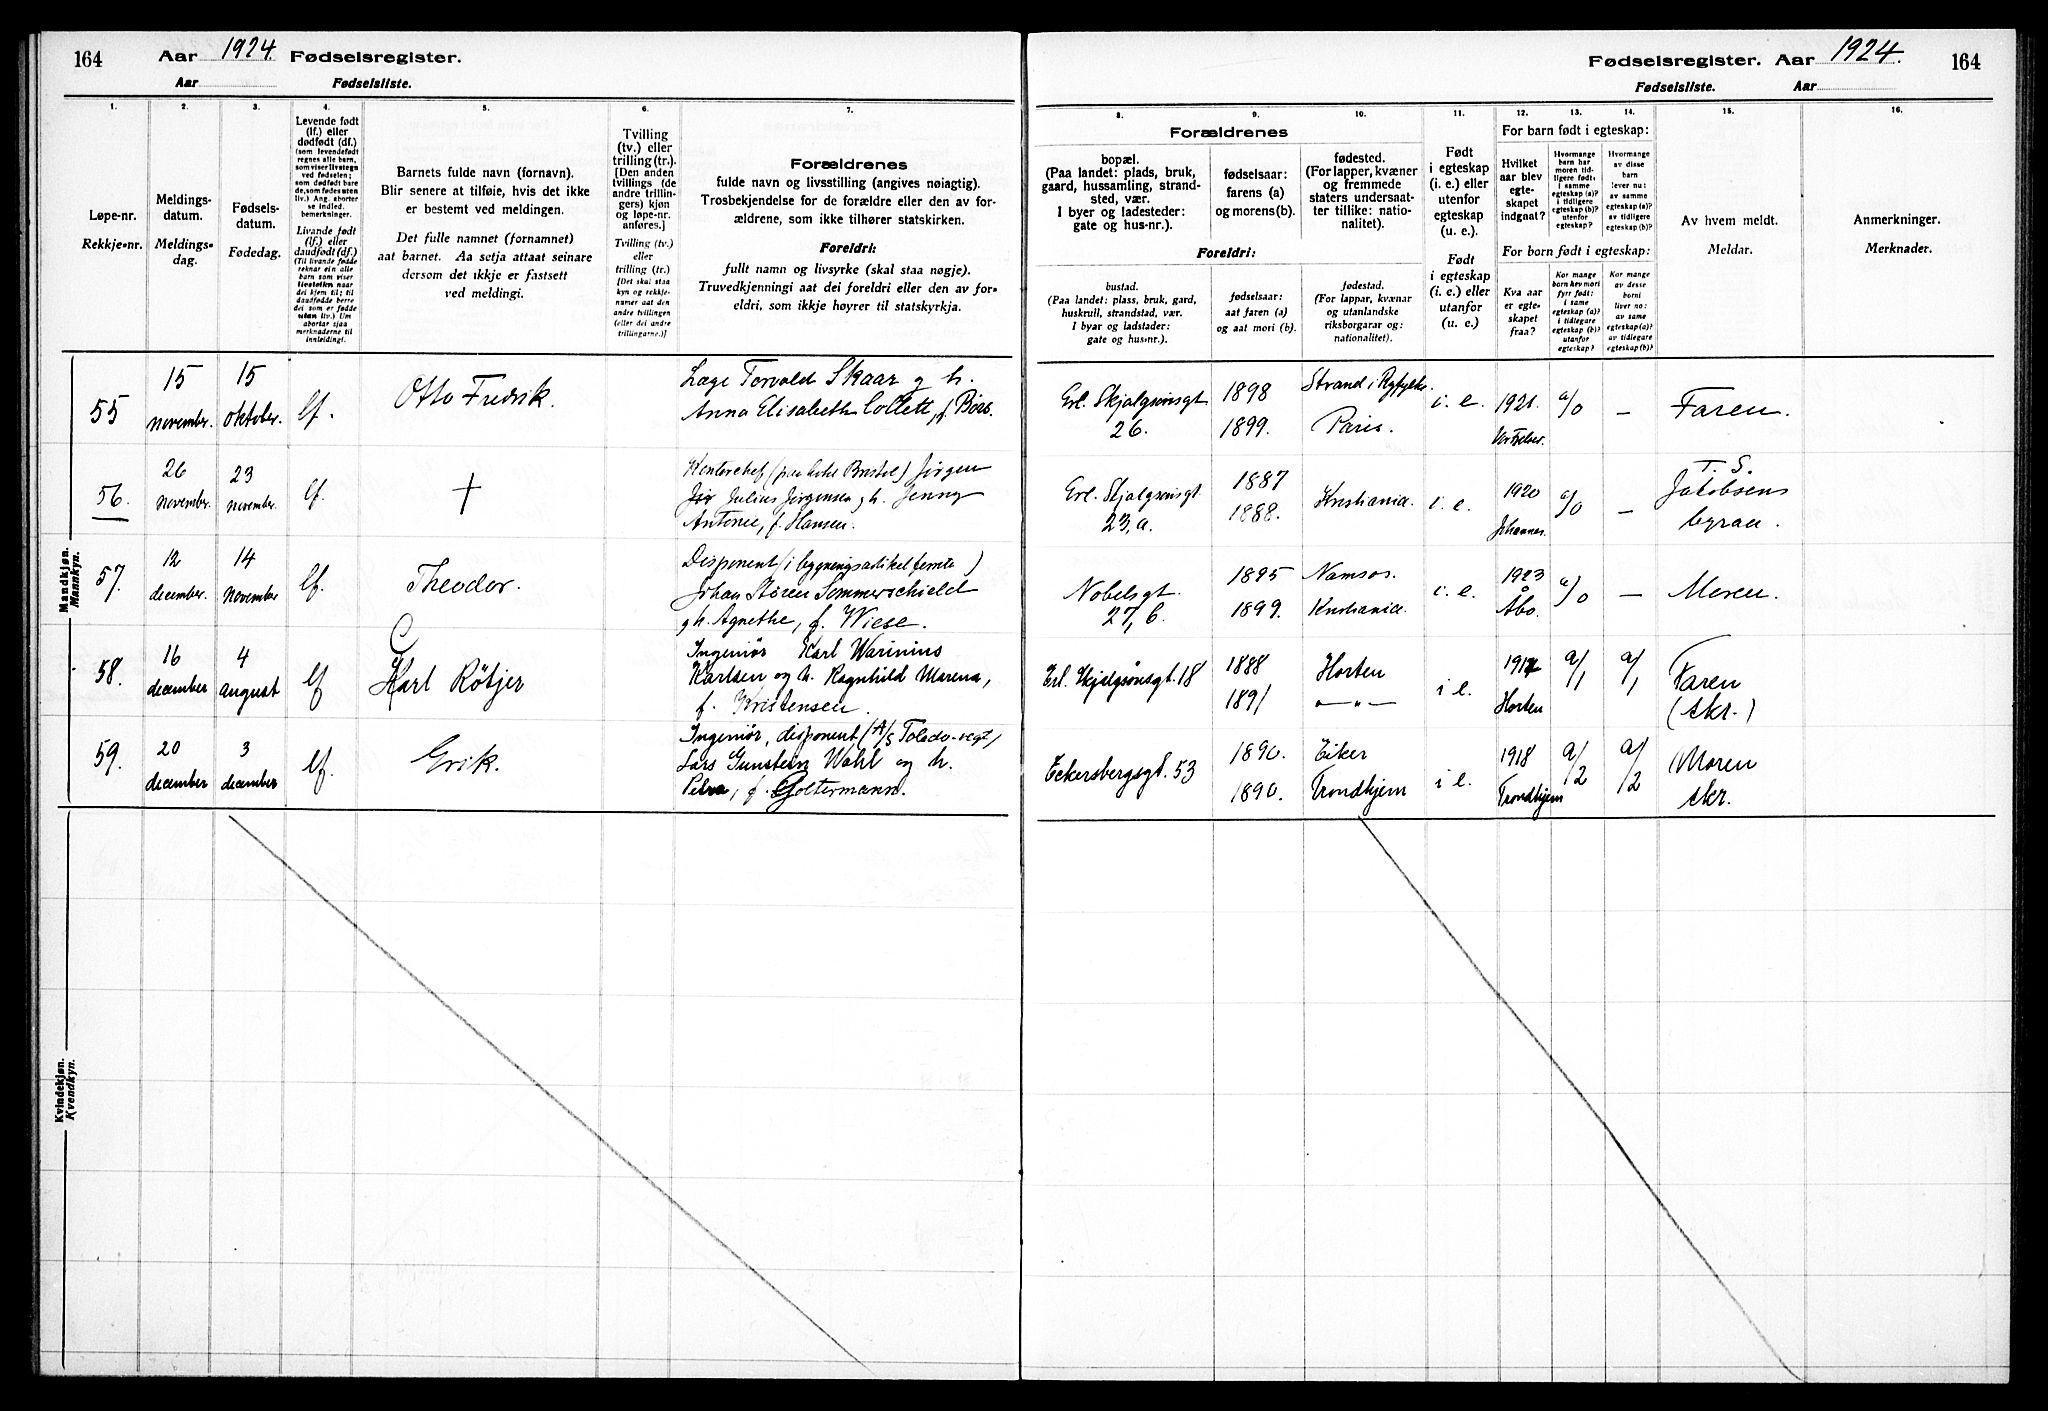 164
Aar 1924. Fødselsregister.
Aar Fødselsliste.
1. 2. 3. 4. 5. 6. 7.
Løpe-nr.
Rekkje-nr.
Meldings-
datum.
Meldings-
dag.
Fødsels-
datum.
Fødedag.
Levende født
(lf.) eller
dødfødt (df.)
(som levendefødt
regnes alle barn,
som viser livstegn
ved fødselen;
som dødfødt bare
de, som fødes uten
liv.) Ang. aborter
se indled.
bemerkninger.
Livande født
(lf.) eller
daudfødt (df.)
(Til livande fødde
reknar ein alle
barn som viser
livsteikn naar
dei kjem til; til
daudfødde berre
dei som er fødde
utan liv.) Um
abortar sjaa
merknaderne til
innleidingi.
Barnets fulde navn (fornavn).
Blir senere at tilføie, hvis det ikke
er bestemt ved meldingen.
Det fulle namnet (fornamnet)
aat barnet. Aa setja attaat seinare
dersom det ikkje er fastsett
ved meldingi.
Tvilling
(tv.) eller
trilling (tr.).
[Den anden
tvillings (de
andre trillin-
gers) kjøn
og løpe-nr.
anføres.]
Tvilling (tv.)
eller
trilling (tr.)
[Det skal staa
kyn og rekkje-
numer aat den
andre tvillingen
(eller dei andre
trillingarne.)]
Forældrenes
fulde navn og livsstilling (angives nøiagtig).
Trosbekjendelse for de forældre eller den av for-
ældrene, som ikke tilhører statskirken.
Foreldri:
fullt namn og livsyrke (skal staa nøgje).
Truvedkjenningi aat dei foreldri eller den av for-
eldri, som ikkje høyrer til statskyrkja.
Mandkjøn.
Mannkyn.
55 15 november. 15 oktober. lf. Otto Fredrik. Læge Torvald Skaar og h.
Anna Elisabeth Collett, f. Børs.
56. 26 november. 23 november. lf. † Kontorchef Jørgen
Julius Jørgensen og h. Jenny
Antonie, f. Hansen.
57. 12 december. 14 november lf. Theodor. Disponent
Johan Støren Sommerschield
og h. Agnethe, f. Wiese.
58. 16 december 4 august lf Karl Røtjer Ingeniør Karl Warinius
Karlsen og h. Ragnhild Marena,
f. Kristensen.
59. 20 december 3 december lf. Erik. Ingeniør, disponent
Lars Gunstein Wahl og h.
Petra, f. Goltermann.
Kvindekjøn.
Kvendkyn.
Fødselsregister. Aar 1924. 164
Fødselsliste. Aar
8. 9. 10. 11. 12. 13. 14. 15. 16.
Forældrenes
bopæl.
(Paa landet: plads, bruk,
gaard, hussamling, strand-
sted, vær.
I byer og ladesteder:
gate og hus-nr.).
Foreldri:
bustad.
(Paa landet: plass, bruk, gard,
huskrull, strandstad, vær.
I byar og ladstader:
gate og hus-nr.).
fødselsaar:
farens (a)
og morens (b).
fødselsaar:
aat faren (a)
og aat mori (b).
fødested.
(For lapper, kvæner
og fremmede
staters undersaat-
ter tillike: natio-
nalitet).
fødestad.
(For lappar, kvænar
og utanlandske
riksborgarar og:
nationalitet).
Født
i egteskap
(i. e.) eller
utenfor
egteskap
(u. e.).
Født
i egteskap
(i. e.) eller
utanfor
(u. e.).
For barn født i egteskap:
Hvilket
aar blev
egte-
skapet
indgaat?
Hvormange
barn har
moren tid-
ligere født:
i samme
egteskap (a)?
utenfor
egteskap (b)?
Hvormange
av disse
barn
lever nu:
av samme
egteskap (a)?
av tidligere
egteskap (b)?
For born født i egteskap:
Kva aar
er egte-
skapet
fraa?
Kor mange
born hev mori
fyrr født:
i same
egteskap (a)?
i tidlegare
utanfor
egteskap?
Kor mange
av desse
borni
liver no:
av same
egteskap (a)?
av tidlegare
egteskap (b)?
Av hvem meldt.
Meldar.
Anmerkninger.
Merknader.
Erl. Skjalgsønsgt 26. 1898 1899. Strand i Ryfylke. Paris. i. e. 1921. a/0 – Faren.
Erl. Skjalgsønsgt 23, a. 1887 1888. Kristiania. i. e. 1920 Johannes. a/0 – T. S. Jacobsens byraa.
Nobelsgt. 27, b. 1895 1899. Namsos. Kristiania. i. e. 1923 Åbo. a/0 – Moren.
Erl. Skjalgsønsgt. 18 1888 1891 Horten –"– i e. Horten a/1 a/1 Faren (skr.)
Eckersbergsgt. 53 1890. 1890. Eiker Trondhjem i e. 1918 Trondhjem a/2 a/2 Moren skr.